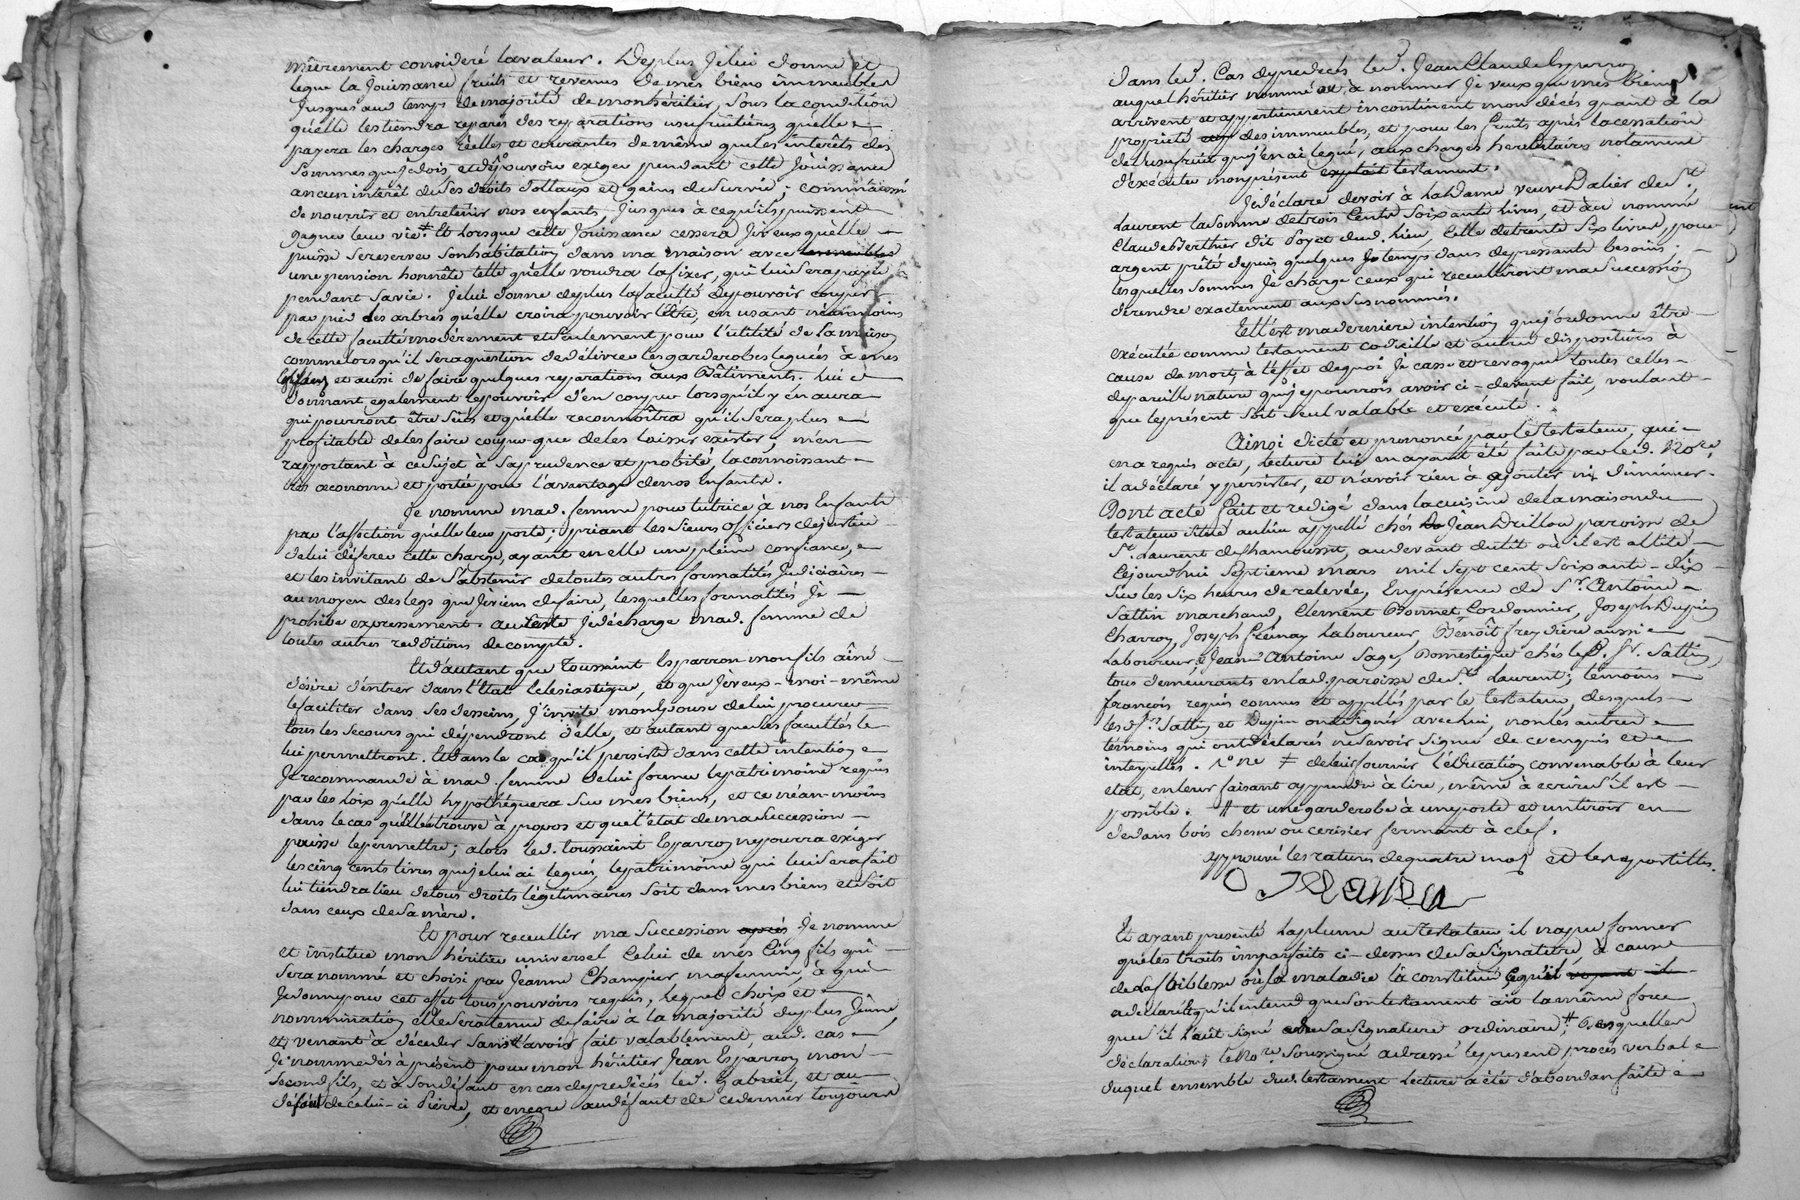 mûrement consideré lavaleur. Deplus Jelui donne et
legue la Jouissance fruits et revenus de mes biens immeubles
Jusques aux temps de majorité de mon héritier, sous la condition
qu'elle les tiendra reparés des reparations usufruitieres qu'elle
payera les charges réelles et courantes de même que les interêts des
sommes que je dois, et de ne pouvoir exiger pendant cette Jouissance
aucun interêt de ses droits dottaux et gains de survie; comme aussi
de nourrir et entretenir nos enfants, Jusques à ce qu'ils puissent
gagner leur vie.# Et lorsque cette Jouissance cessera Je veux qu'elle
puisse se reserver son habitation dans ma maison avec
une pension honnête telle qu'elle voudra la fixer, qui lui sera payée
pendant sa vie. Je lui donne deplus la faculté de pouvoir couper
par pied des arbres qu'elle croira pouvoir l'être, en usant néanmoins
de cette faculté modérement et seulement pour l'utilité de la maison
comme lorsqu'il sera question de délivrer les garderobes leguées à mes
filles, et aussi de faire quelques reparations aux Bâtiments. Lui
donnant egalement le pouvoir d'en couper lorsqu'il y en aura
qui pourront être secs et qu'elle reconnoîtra qu'il sera plus
profitable de les faire couper que de les laisser exister, m'en
rapportant à ce sujet à sa prudence et probité, la connoissant
très oeconome et portée pour l'avantage de nos enfants.
Je nomme mad. femme pour tutrice à nos Enfants
par l'affection qu'elle leur porte; priant les sieurs officiers de justice
de lui déferer cette charge, ayant en elle une pleine confiance,
et les invitant de s'abstenir de toutes autres formalités Judiciaires
au moyen des legs que Je viens de faire, lesquelles formalités Je
prohibe expressement. au reste Je décharge mad. femme de
toutes autres redditions de compte.
Et d'autant que Toussaint Esparron mon fils aîné
désire d'entrer dans l'Etat Eclesiastique, et que Je veux-moi-même
le faciliter dans ses desseins, J'invite mon Epouse de lui procurer
tous les secours qui dépendront d'elle, et autant que ses facultés le
lui permettront. Et dans le cas qu'il persiste dans cette intention
Je recommande à mad. femme de lui former le patrimoine requis
par les Loix qu'elle hypothéquera sur mes biens, et ce néan-moins
dans le cas qu'elle trouve à propos et que l'état de ma succession
puisse le permettre; alors led. Toussaint Esparron ne pourra exiger
les cinq cents livres que je lui ai legués, le patrimoine qui lui sera fait
lui tiendra lieu de tous droits légitimaires soit dans mes biens et soit
dans ceux de sa mère.
Et pour receullir ma succession après Je nomme
et institue mon héritier universel Celui de mes Cinq fils qui
sera nommé et choisi par Jeanne Champier ma femme, à qui
Je donne pour cet effet tous pouvoirs requis, lequel choix et
nommination elle sera tenue de faire à la majorité du plus Jeune,
et venant à déceder sans l'avoir fait valablement, aud. cas
Je nomme dès à présent pour mon héritier Jean Esparron mon
second fils, et à son défaut en cas de predécès led. Gabriel, et au
défaut de celui-ci Pierre, et encore au défaut de ce dernier toujours
dans led. Cas de predecès led. Jean Claude Esparron
auquel héritier nommé ou à nommer Je veux que mes biens
arrivent et appartiennent incontinent mon décès quant à la
propriété des immeubles, et pour les fruits après la cessation
de l'usufruit que j'en ai legué, aux charges héréditaires notament
d'exécuter mon présent exploit testament.
Je déclare devoir à la Dame veuve Dalier de St.
Laurent la somme de trois Cents soixante livres, et au nommé
Claude Berthier dit Poyet dud. Lieu, Celle de trente six livres, pour
argent prêté depuis quelques temps dans de pressants besoins.
lesquelles sommes Je charge ceux qui receulliront ma succession
de rendre exactement aux susnommés.
Telle est ma derniere intention que j'ordonne être
exécutée comme testament codicille et autres dispositions à
cause de mort, à l'effet de quoi Je casse et revoque toutes celles
de pareille nature que je pourrois avoir ci-devant fait, voulant
que le présent soit seul valable et exécuté.
Ainsi dicté et prononcé par le testateur, qui
en a requis acte, lecture lui en ayant été faite par led. Nore.
il a déclaré y persister, et n'avoir rien à ajouter ni diminuer.
Dont acte fait et redigé dans la cuisine de la maison du
testateur située au lieu appellé chés Jean Drillon paroisse de
St. Laurent de Chamousset, au devant du lit où il est allité
Cejourd'hui septieme mars mil sept cent soixante-dix
sur les six heures de relevée, En présence de Sr. Antoine
Sattin marchand, Clement Bonnet Cordonnier, Joseph Dupin
Charron, Joseph Crêmay Laboureur, Benoît freydiere aussi
Laboureur, & Jean Antoine Sage, Domestique chés led. Sr. Sattin,
tous demeurants en lad. paroisse de St. Laurent; temoins
françois requis connus et appellés par le testateur, desquels
lesd. Srs. Sattin et Dupin ont signés avec lui, non les autres
témoins qui ont déclarés ne savoir signer de ce enquis et
interpellés. # de leur fournir l'éducation convenable à leur
etat, en leur faisant apprendre à lire, même à ecrire s'il est
possible. # et une garderobe à une porte et un tiroir en
dedans bois chesne ou cerisier fermant à clef.
approuvé les ratures de quatre mots et les apostilles.
Et ayant présenté la plume au testateur il n'a pu former
que les traits imparfaits ci-dessus de sa signature, à cause
de la foiblesse où la maladie l'a constitué, ce qu'il voyant il
a déclaré qu'il entend que son testament ait la même force
que s'il l'eût signé de sa signature ordinaire,# Desquelles
déclarations le Nore. soussigné a dressé le present procès verbal
duquel ensemble dud. testament lecture a été d'abondan faite